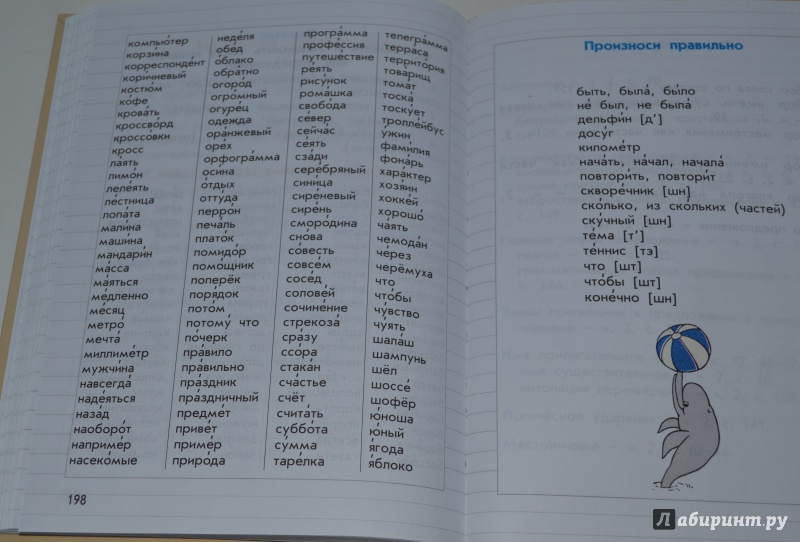 компью́тер
корзи́на
корреспонде́нт
кори́чневый
костю́м
ко́фе
крова́ть
кроссво́рд
кроссо́вки
кросс
ла́ять
лимо́н
леле́ять
ле́стница
лопа́та
мали́на
маши́на
мандари́н
ма́сса
ма́яться
ме́дленно
ме́сяц
метро́
мечта́
миллиме́тр
мужчи́на
навсегда́
наде́яться
наза́д
наоборо́т
наприме́р
насеко́мые
неде́ля
обе́д
о́блако
обра́тно
огоро́д
огро́мный
огуре́ц
оде́жда
ора́нжевый
оре́х
орфогра́мма
оси́на
о́тдых
отту́да
перро́н
печа́ль
плато́к
помидо́р
помо́щник
поперёк
поря́док
пото́м
потому́ что
по́черк
пра́вило
пра́вильно
пра́здник
пра́здничный
предме́т
приве́т
приме́р
приро́да
програ́мма
профе́ссия
путеше́ствие
ре́ять
рису́нок
рома́шка
свобо́да
се́вер
сейча́с
се́ять
сза́ди
сере́бряный
сини́ца
сире́невый
сире́нь
сморо́дина
сно́ва
со́весть
совсе́м
сосе́д
солове́й
сочине́ние
стрекоза́
сра́зу
ссо́ра
стака́н
сча́стье
счёт
счита́ть
суббо́та
су́мма
таре́лка
телегра́мма
терра́са
террито́рия
това́рищ
тома́т
тоска́
тоску́ет
тролле́йбус
у́жин
фами́лия
фона́рь
хара́ктер
хозя́ин
хокке́й
хорошо́
ча́ять
чемода́н
че́рез
черёмуха
что
что́бы
чу́вство
чу́ять
шала́ш
шампу́нь
шёл
шоссе́
шофёр
ю́ноша
ю́ный
я́года
я́блоко
198
Произноси правильно
быть, была́, бы́ло
не́ был, не была́
дельфи́н [д’]
досу́г
киломе́тр
нача́ть, на́чал, начала́
повтори́ть, повтори́т
скворе́чник [шн]
ско́лько, из ско́льких (частей)
ску́чный [шн]
те́ма [т’]
те́ннис [тэ]
что [шт]
что́бы [шт]
коне́чно [шн]
Лабиринт.ру